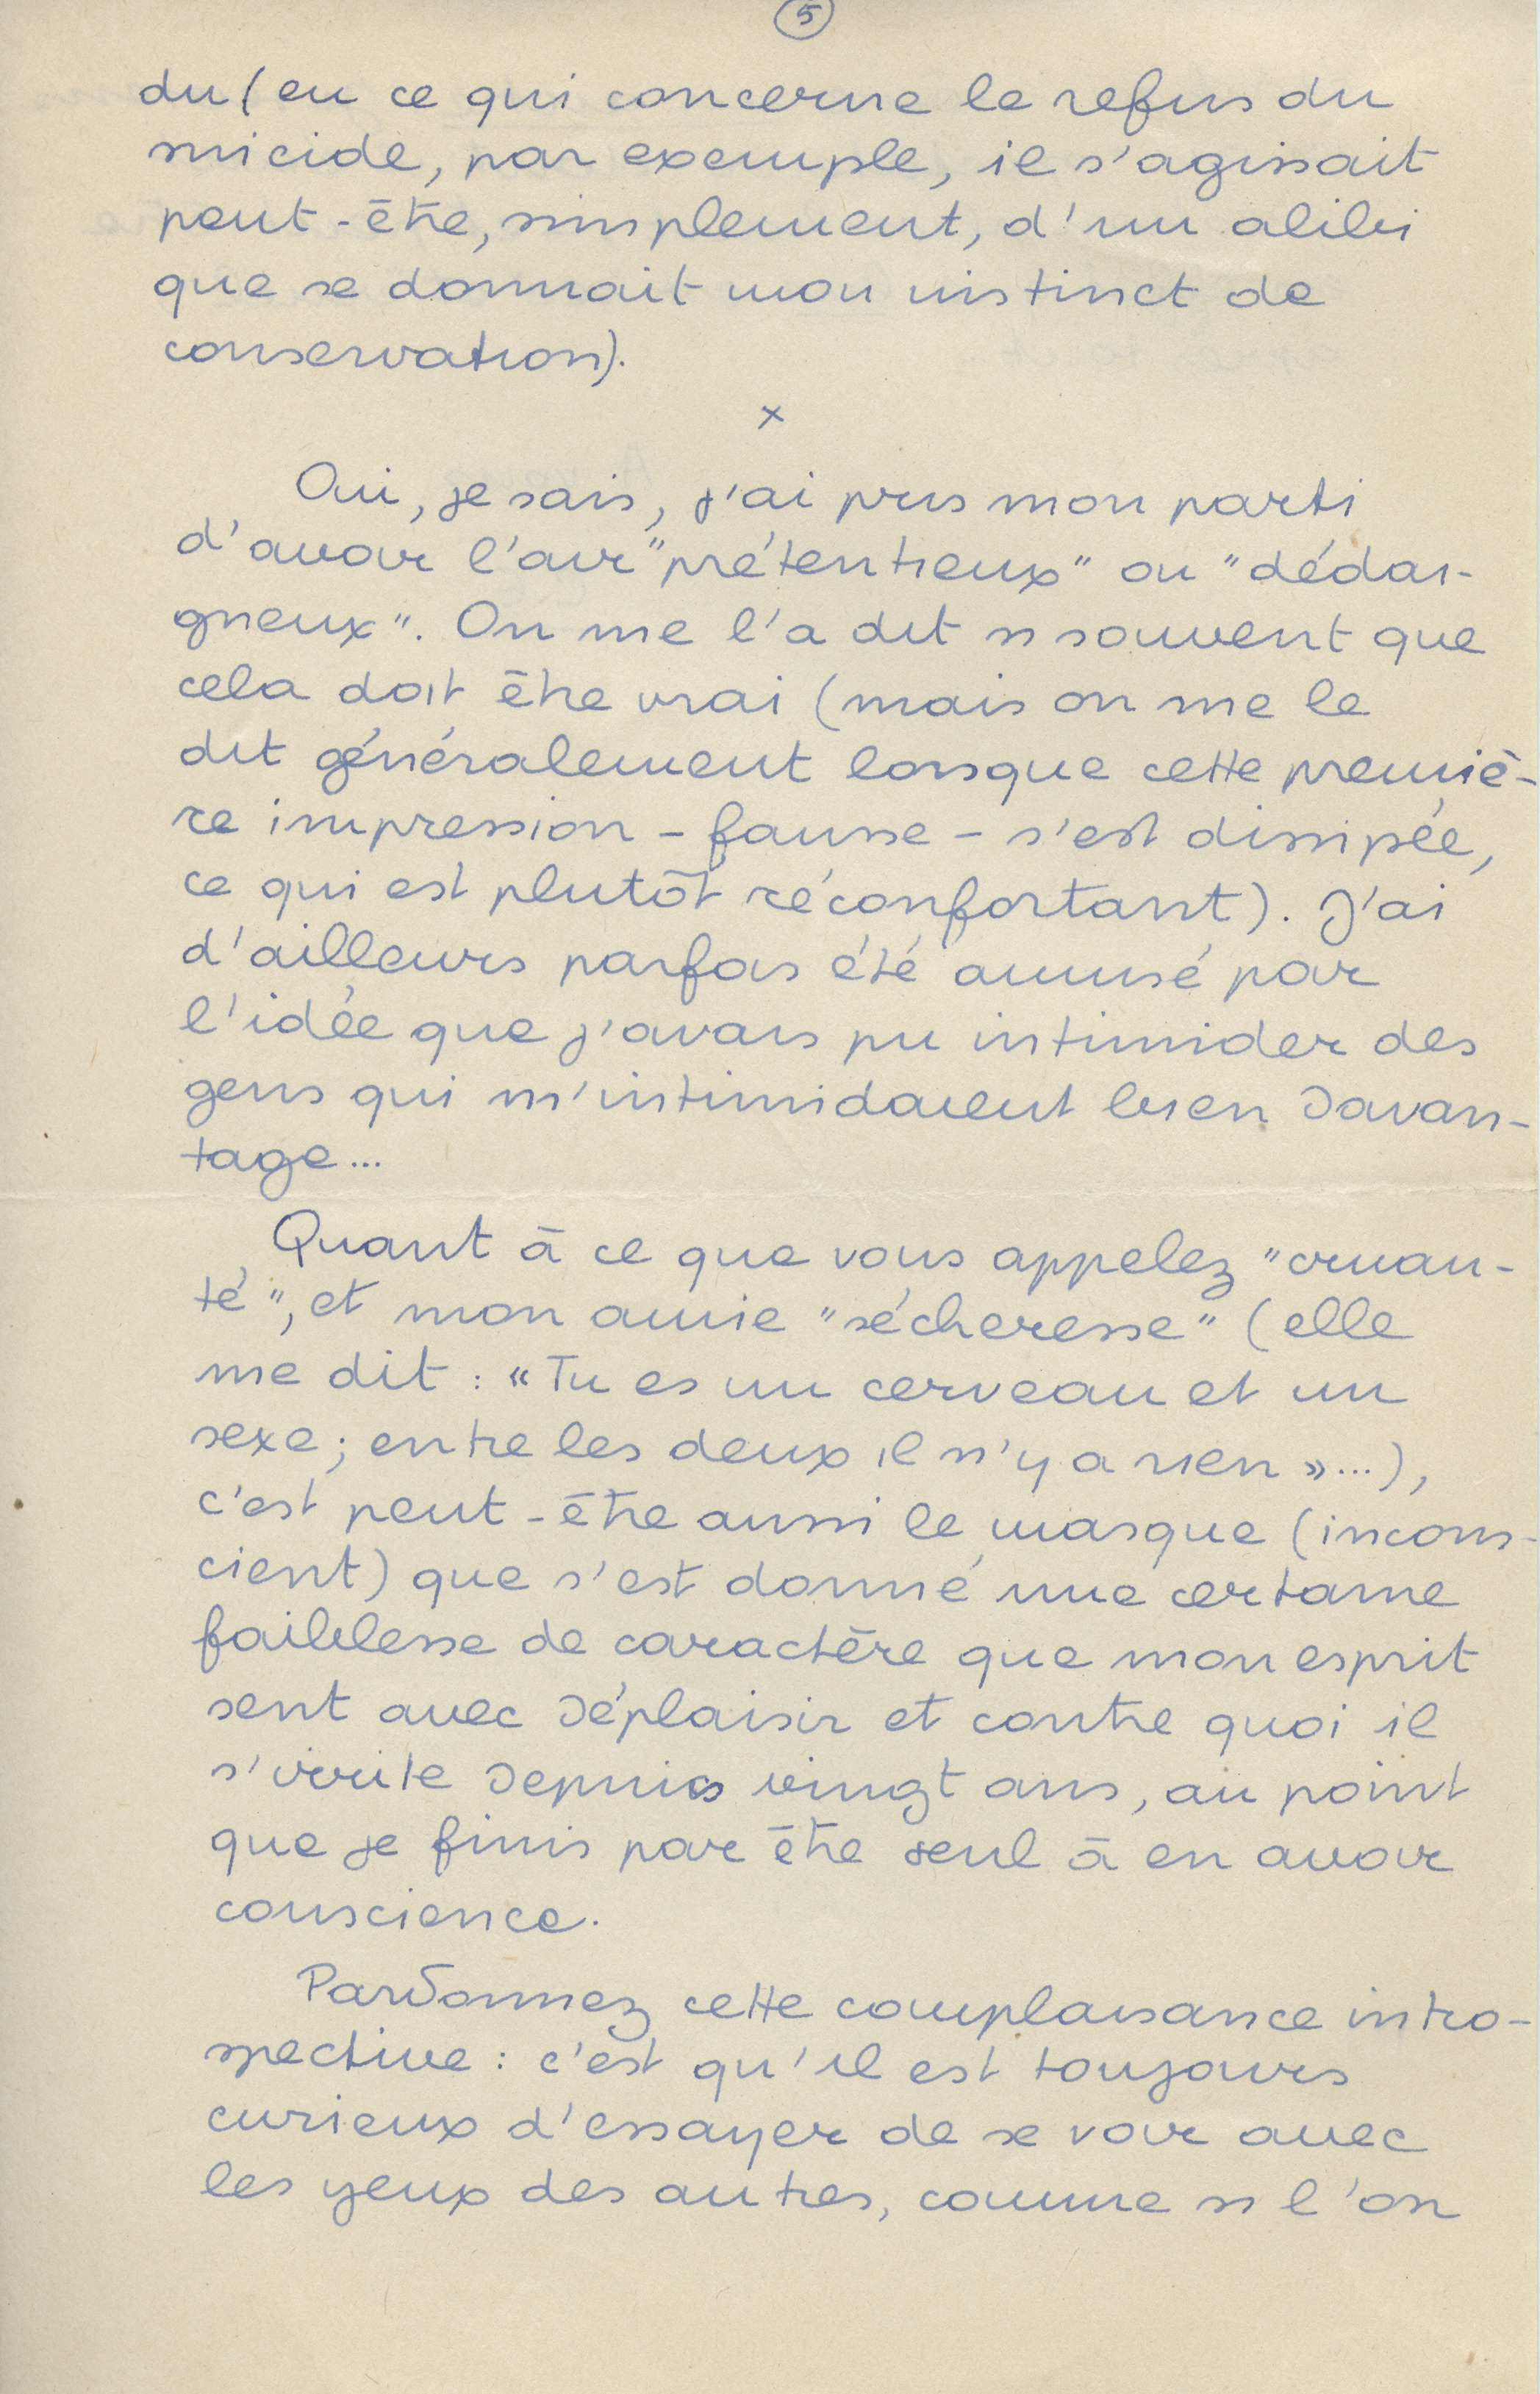 5
du (en ce qui concerne le refus du
suicide, par exemple, il s'agissait
peut-être, simplement, d'un alibi
que se donnait mon instinct de
conservation).
x
Oui, je sais, j'ai pris mon parti
d'avoir l'air "prétentieux" ou "dédai-
gneux". On me l'a dit si souvent que
cela doit être vrai (mais on me le
dit généralement lorsque cette premiè-
re impression - fausse - s'est dissipée,
ce qui est plutôt réconfortant). J'ai
d'ailleurs parfois été amusé par
l'idée que j'avais pu intimider des
gens qui m'intimidaient bien davan-
tage...
Quant à ce que vous appelez "cruau-
té", et mon amie "sécheresse" (elle
me dit : « Tu es un cerveau et un
sexe ; entre les deux il n'y a rien »...),
c'est peut-être aussi le masque (incons-
cient) que s'est donné une certaine
faiblesse de caractère que mon esprit
sent avec déplaisir et contre quoi il
s'irrite depuis vingt ans, au point
que je finis par être seul à en avoir
conscience.
Pardonnez cette complaisance intro-
spective : c'est qu'il est toujours
curieux d'essayer de se voir avec
les yeux des autres, comme si l'on